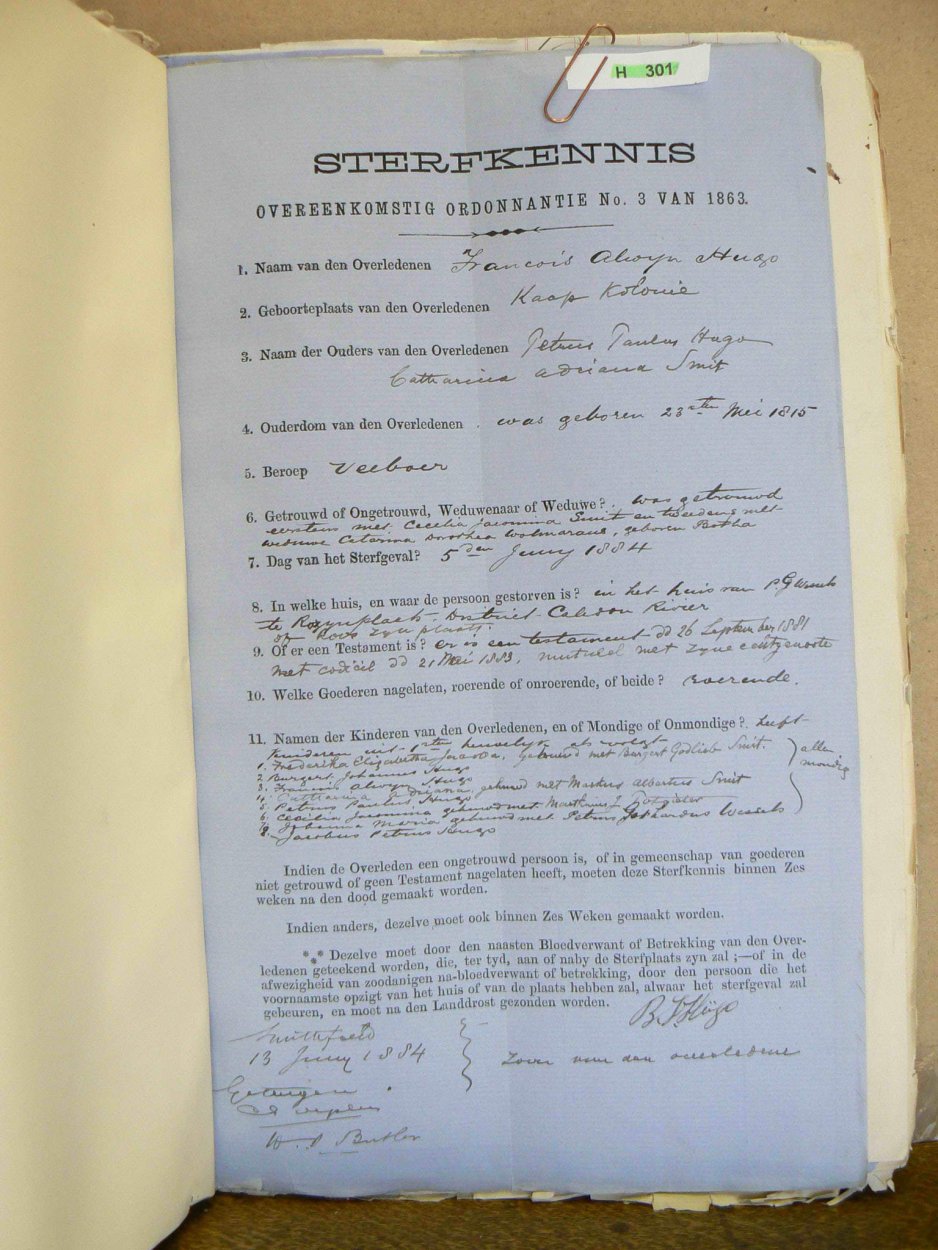 H 301
STERFKENNIS
OVEREENKOMSTIG ORDONNANTIE No. 3 VAN 1863.
1. Naam van den Overledenen Francois Alwyn Hugo
2. Geboorteplaats van den Overledenen Kaap Kolonie
3. Naam der Ouders van den Overledenen Petrus Paulus Hugo
Catharina Adriana Smit
4. Ouderdom van den Overledenen . was geboren 23sten Mei 1815
5. Beroep Veeboer
6. Getrouwd of Ongetrouwd, Weduwenaar of Weduwe? was getrouwd
eerstens met Cecilia Jacomina Smit en tweedens met
weduwe Catarina Dorothea Wolmarans, geboren Botha
7. Dag van het Sterfgeval? 5den Juny 1884
8. In welke huis, en waar de persoon gestorven is? in het huis van P G Wessels
te Rozynplaats District Caledon Rivier
of
9. Of er een Testament is? er is een testament dd 26 September 1881
met codicil dd 21 Mei 1883, mutueel met zyne echtgenoote
10. Welke Goederen nagelaten, roerende of onroerende, of beide? roerende.
11. Namen der Kinderen van den Overledenen, en of Mondige of Onmondige? heeft
Kinderen uit 1ste huwelyk als volgt
1. Frederika Elizabetha Jacoba, getrouwd met Burgert Godlieb Smit.
2. Burgert Johannes Hugo
3. Francois Alwyn Hugo
4. Catharina Adriana, gehuwd met Markus Albertus Smit
5. Petrus Paulus Hugo
6. Cecilia Jacomina gehuwd met Marthinus Potgieter
7. Johanna Maria gehuwd met Petrus Gerhardus Wessels
8. Jacobus Petrus Hugo
allen
mondig
Indien de Overleden een ongetrouwd persoon is, of in gemeenschap van goederen
niet getrouwd of geen Testament nagelaten heeft, moeten deze Sterfkennis binnen Zes
weken na den dood gemaakt worden.
Indien anders, dezelve moet ook binnen Zes Weken gemaakt worden.
*** Dezelve moet door den naasten Bloedverwant of Betrekking van den Over-
ledenen geteekend worden, die, ter tyd, aan of naby de Sterfplaats zyn zal ;—of in de
afwezigheid van zoodanigen na-bloedverwant of betrekking, door den persoon die het
voornaamste opzigt van het huis of van de plaats hebben zal, alwaar het sterfgeval zal
gebeuren, en moet na den Landdrost gezonden worden.
B J Hugo
Smithfield
13 Juny 1884
zoon van den overledene
Getuigen
W. S Butler